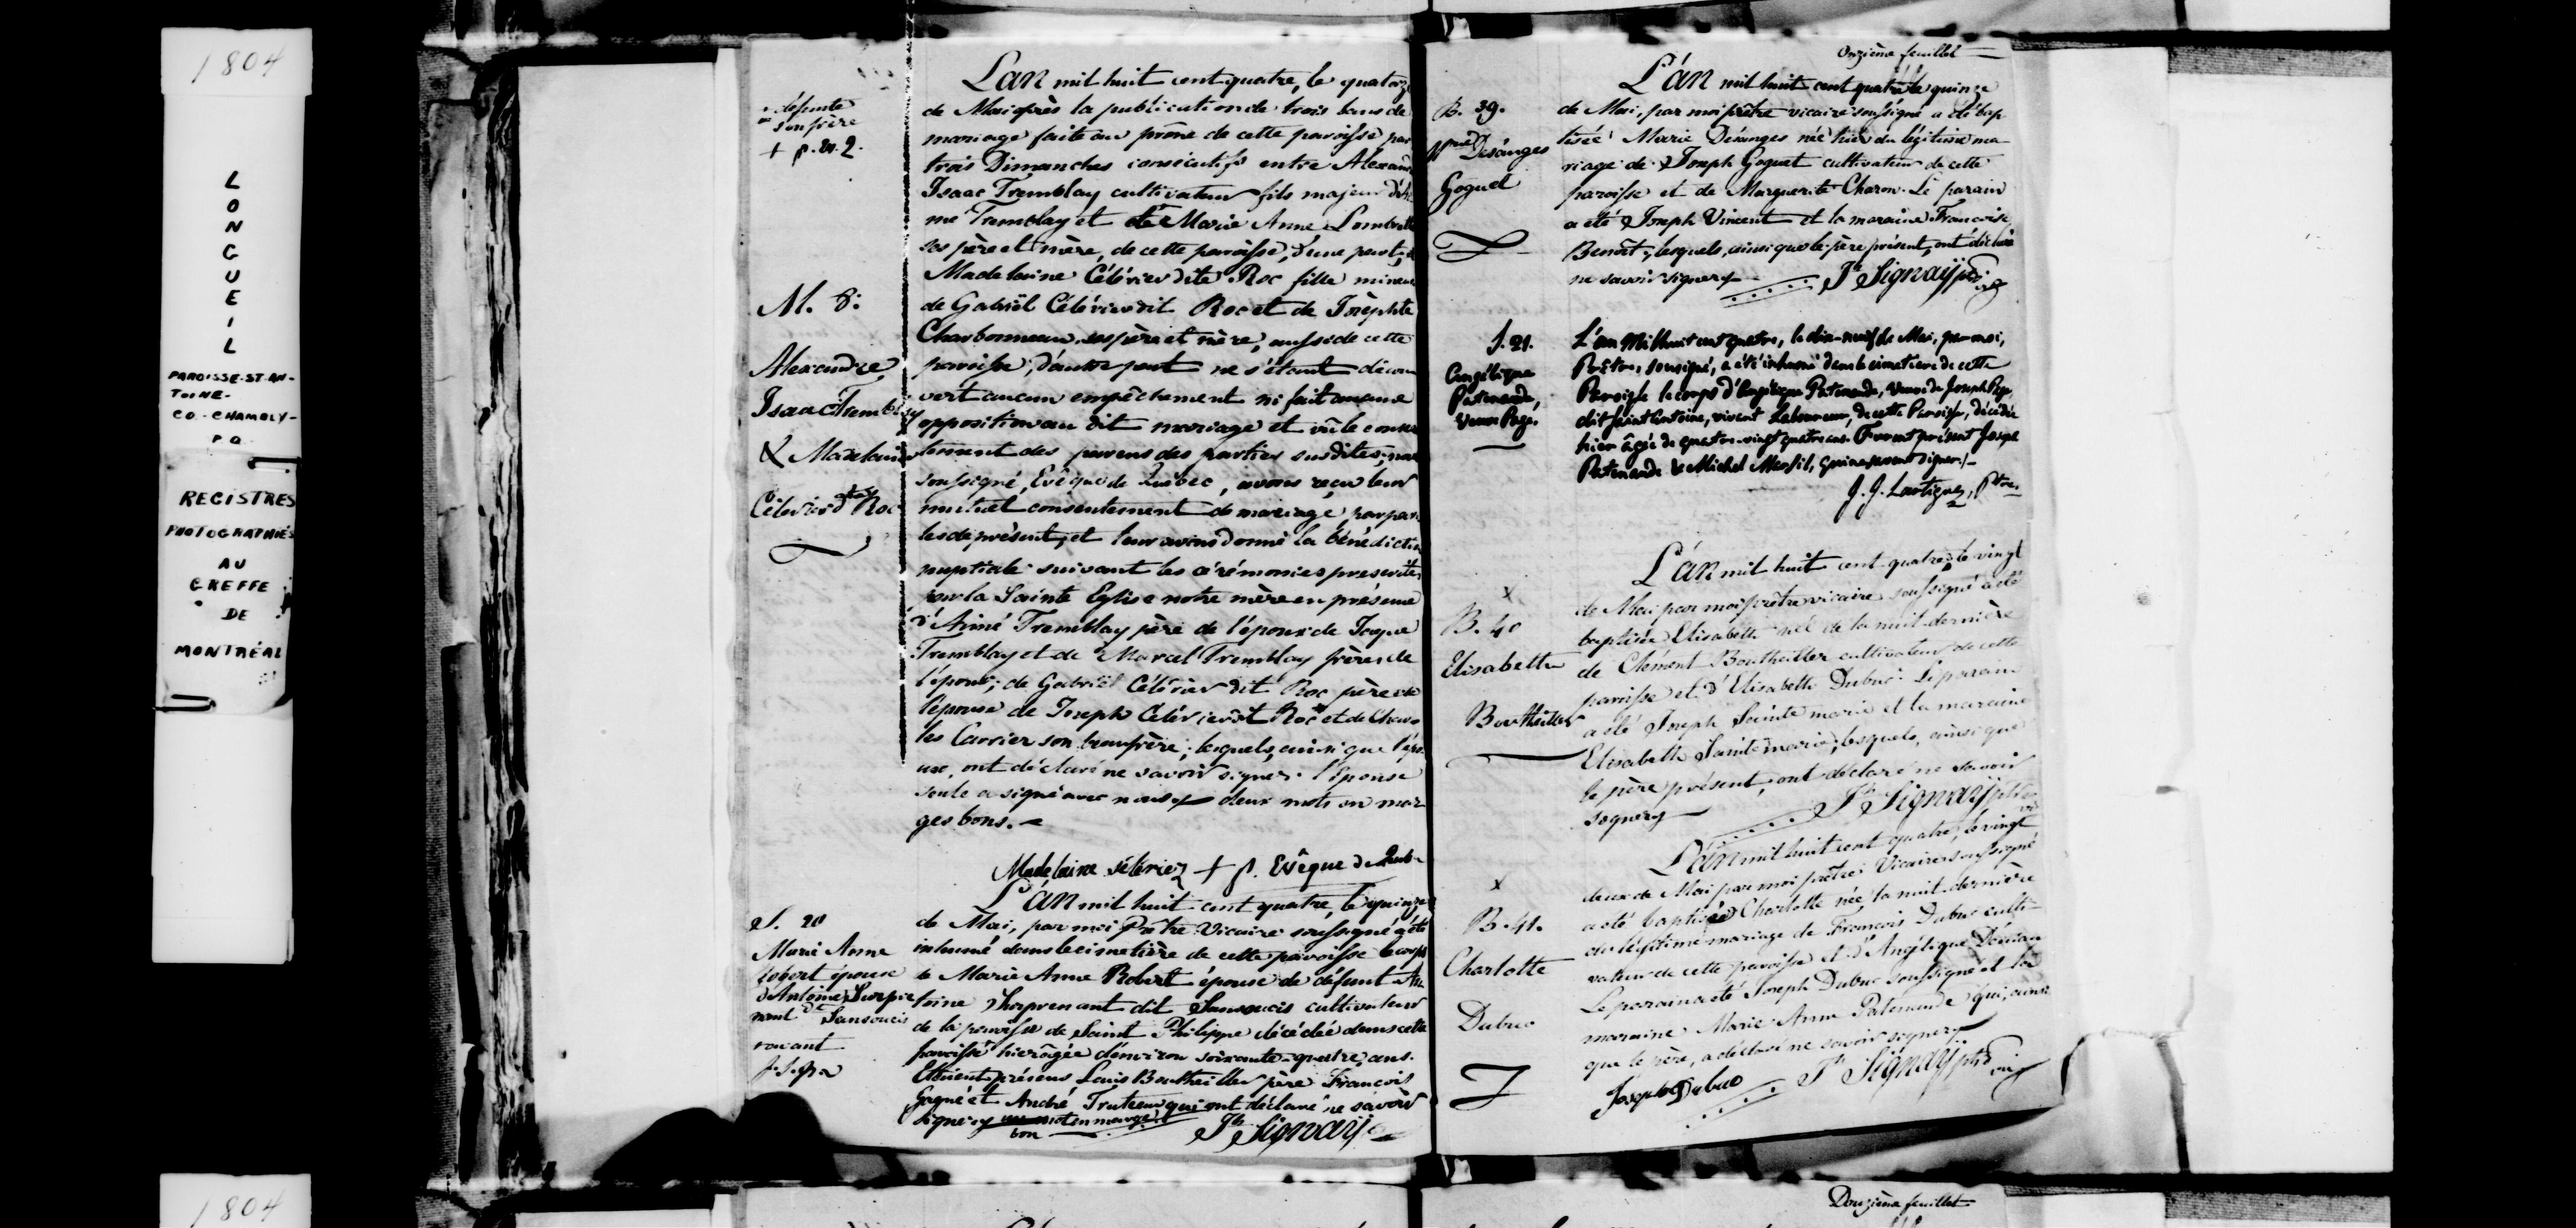 1804
LONGUEIL
PAROISSE-ST-AN-
TOINE-
CO-CHAMBLY-
P Q
REGISTRES
PHOTOGRAPHIÉS
AU
GREFFE
DE
MONTRÉAL
1804
défunte
son frère
+ p. ev. q.
M. 8:
Alexandre
Isaac Tremblay
& Madelaine
Célérier dte Roc
L'an mil huit cent quatre, le quatorze
de Mai après la publication de trois bans de
mariage faite au prône de cette paroisse par
trois Dimanches consécutifs entre Alexandre
Isaac Tremblay cultivateur fils majeur d'Ai-
mé Tremblay et de Marie Anne
ses père et mère, de cette paroisse, d'une part, &
Madelaine Célérier dite Roc fille mineure
de Gabriël Célérier dit Roc et de Josephte
Charbonneau ses père et mère, aussi de cette
paroisse, d'autre part ne s'étant décou
vert aucun empêchement ni fait aucune
opposition au dit mariage et vû le conse
tement des parens des parties susdites, nous
soussigné, Evêque de Quebec, avons reçu leur
mutuel consentement de mariage par paro
les de présent, et leur avons donné la bénédiction
nuptiale suivant les cérémonies prescrites
par la Sainte Eglise notre mère en présence
d'Aimé Tremblay père de l'époux de Joseph
Tremblay et de Marcel Tremblay frères de
l'époux; de Gabriël Célérier dit Roc père de
l'épouse de Joseph Célérier dit Roc et de Char
les Carrier son beaufrère; lesquels, ainsi que l'épo
ux, ont déclaré ne savoir signer. l'épouse
seule a signé avec nous deux mots en mar
ges bons.
Madelaine sélérier + p. Evêque de Queb.
S. 20
Marie Anne
Robert épouse
d'Antoine Surpre
nant dt Sansoucis
L'an mil huit cent quatre, le quinze
de Mai, par moi Prêtre Vicaire soussigné a été
inhumé dans le cimetière de cette paroisse le corps
de Marie Anne Robert épouse de défunt An
toine Surprenant dit Sansoucis cultivateur
de la paroisse de Saint Philippe décédée dans cette
paroisse hier âgée d'environ soixante-quatre ans.
Etoient présens Louis Boutheiller père François
Gagné et André Truteau qui ont déclaré ne savoir
signer un mot en marge
bon
Jh Signaÿ
Onzième feuillet
B. 39.
Mrie Désanges
Goguet
L'an mil huit cent quatre le quinze
de Mai, par moi prêtre vicaire soussigné a été bap
tisée Marie Désanges née hier du légitime ma
riage de Joseph Goguet cultivateur de cette
paroisse et de Marguerite Charon. Le parain
a été Joseph Vincent et la maraine Françoise
Benoît, lesquels, ainsi que le père présent, ont déclaré
ne savoir signer
Jh Signaÿ ptre
S. 21.
Angélique
Patenaude,
Veuve Page.
L'an Mil huit cent quatre, le dix-neuf de Mai, par moi,
Prêtre soussigné, a été inhumé dans le cimetiere de cette
Paroisse le corps d'Angélique Patenaude, Veuve de Joseph Page
dit Saint Antoine, vivant Laboureur, de cette Paroisse, décédée
hier âgée de quatre-vingt quatre ans. Furent présent Joseph
Patenaude & Michel Marsil, qui ne savent signer./-
J. J. Lartigue, Ptre.
x
B. 40
Elisabethe
Bouthellier
L'an mil huit cent quatre, le vingt
de Mai par moi prêtre vicaire soussigné a été
baptisée Elisabethe née de la nuit dernière
de Clément Bouthellier cultivateur de cette
paroisse et d'Elisabethe Dubuc. Le parain
a été Joseph Sainte marie et la maraine
Elisabethe Sainte marie; lesquels, ainsi que
le père présent, ont déclaré ne savoir
signer
Jh Signaÿ ptre
x
B. 41.
Charlotte
Dubuc
L'an mil huit cent quatre, le vingt
deux de Mai, par moi prêtre Vicaire soussigné
a été baptisée Charlotte née la nuit dernière
du légitime mariage de François Dubuc culti-
vateur de cette paroisse et d'Angélique
Le parain a été Joseph Dubuc soussigné et la
maraine Marie Anne Patenaude qui, ainsi
que le père, a déclaré ne savoir signer
Joseph Dubuc
Jh Signaÿ ptre
Douzième feuillet